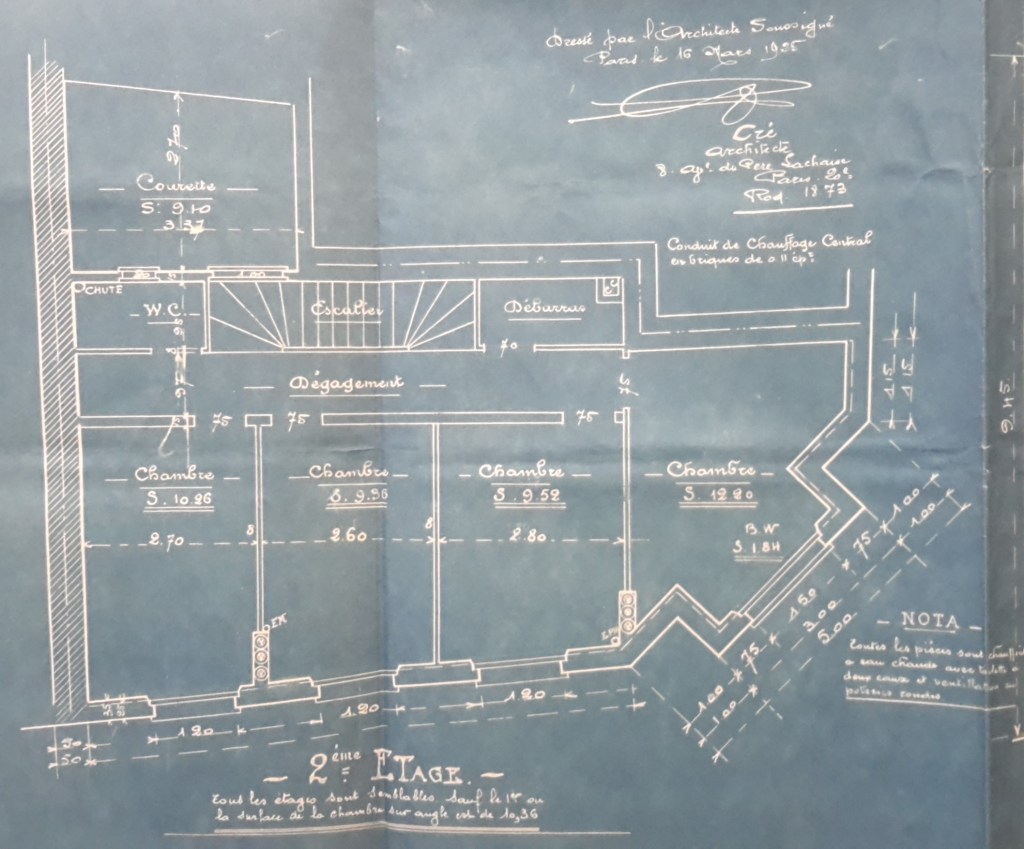 Dressé par l'Architecte Soussigné
Paris le 16 Mars 1925
Cré
Architecte
8. du Père Lachaise
Paris. 20e.
Roq. 1873
Conduit de Chauffage Central
en briques de 0 11 épr
2.70
Courette
S: 9.10
3.37
80
1.00
CHUTE
W.C.
Escalier
Débarras
70
Dégagement
75
75
75
Chambre
S. 10.26
Chambre
S. 9.36
Chambre
S. 9.52
Chambre
S. 12.20
B.W
S. 1.84
2.70
8
2.60
8
2.80
4.15
4.15
2.45
1.00
1.00
75
1.50
3.00
5.00
75
1.00
1.00
NOTA
Toutes les pièces sont chauffées
a eau chaude avec
et ventilation
1.20
1.20
1.20
50
50
2ème ETAGE.
tous les étages sont semblables. sauf le 1er ou
la surface de la chambre sur angle est de 10,36